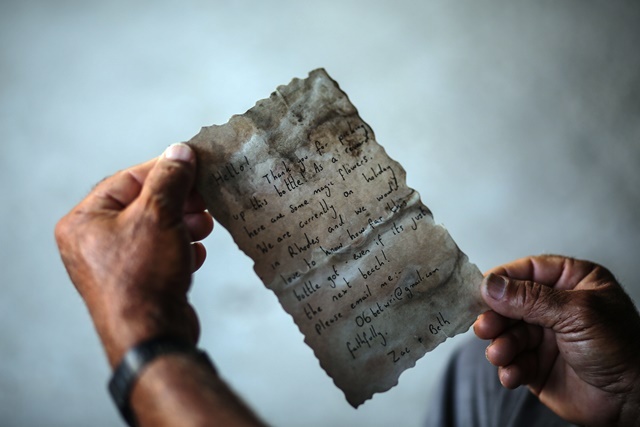 Hello! Thank you for picking
up this bottle! As a reward
here are some magic flowers.
We are currently on holiday
in Rhodes and we would
love to know how far this
bottle got even if it's just
the next beach!
please email me:
faithfully,
Zac + Beth